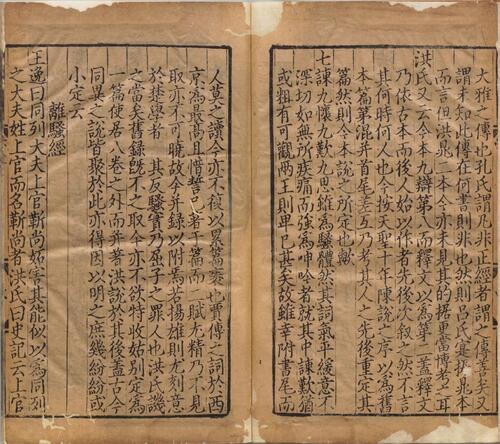 大雅之傳也孔氏謂凡非正經者謂之傳善矣又
謂未知此傳在何書則非也然則呂氏寔据晁本
而言但洪晁二本今亦未見其的據更當博考之耳
洪氏又云今本九辯第八而釋文以為第二蓋釋文
乃依古本而後人始以作者先後次叙之然不言
其何時何人也今按天聖十年陳說之序以為舊
本篇第混并首尾差互乃考其人之先後重定其
篇然則今本說之所定也歟
七諫九懷九歎九思雖為騷體然其詞氣平緩意不
深切如無所疾痛而強為呻吟者就其中諫歎猶
或粗有可觀兩王則卑已甚矣故雖幸附書尾而
人莫之讀今亦不復以累篇袠也賈傳之詞於西
京為最高且惜誓已著于篇而二賦尤精乃不見
取亦不可曉故今并録以附焉若揚雄則尤刻意
於楚學者 其反騷實乃屈子之罪人也洪氏譏
之當矣舊録既不之取今亦不欲特收姑別定為
一篇使居八卷之外而并著洪說於其後蓋古今
同異之說皆聚於此亦得因以明之庶幾紛紛或
小定云
離騷經
王逸曰同列大夫上官靳尚妬害其能似以為同列
之大夫姓上官而名靳尚者洪氏曰史記云上官